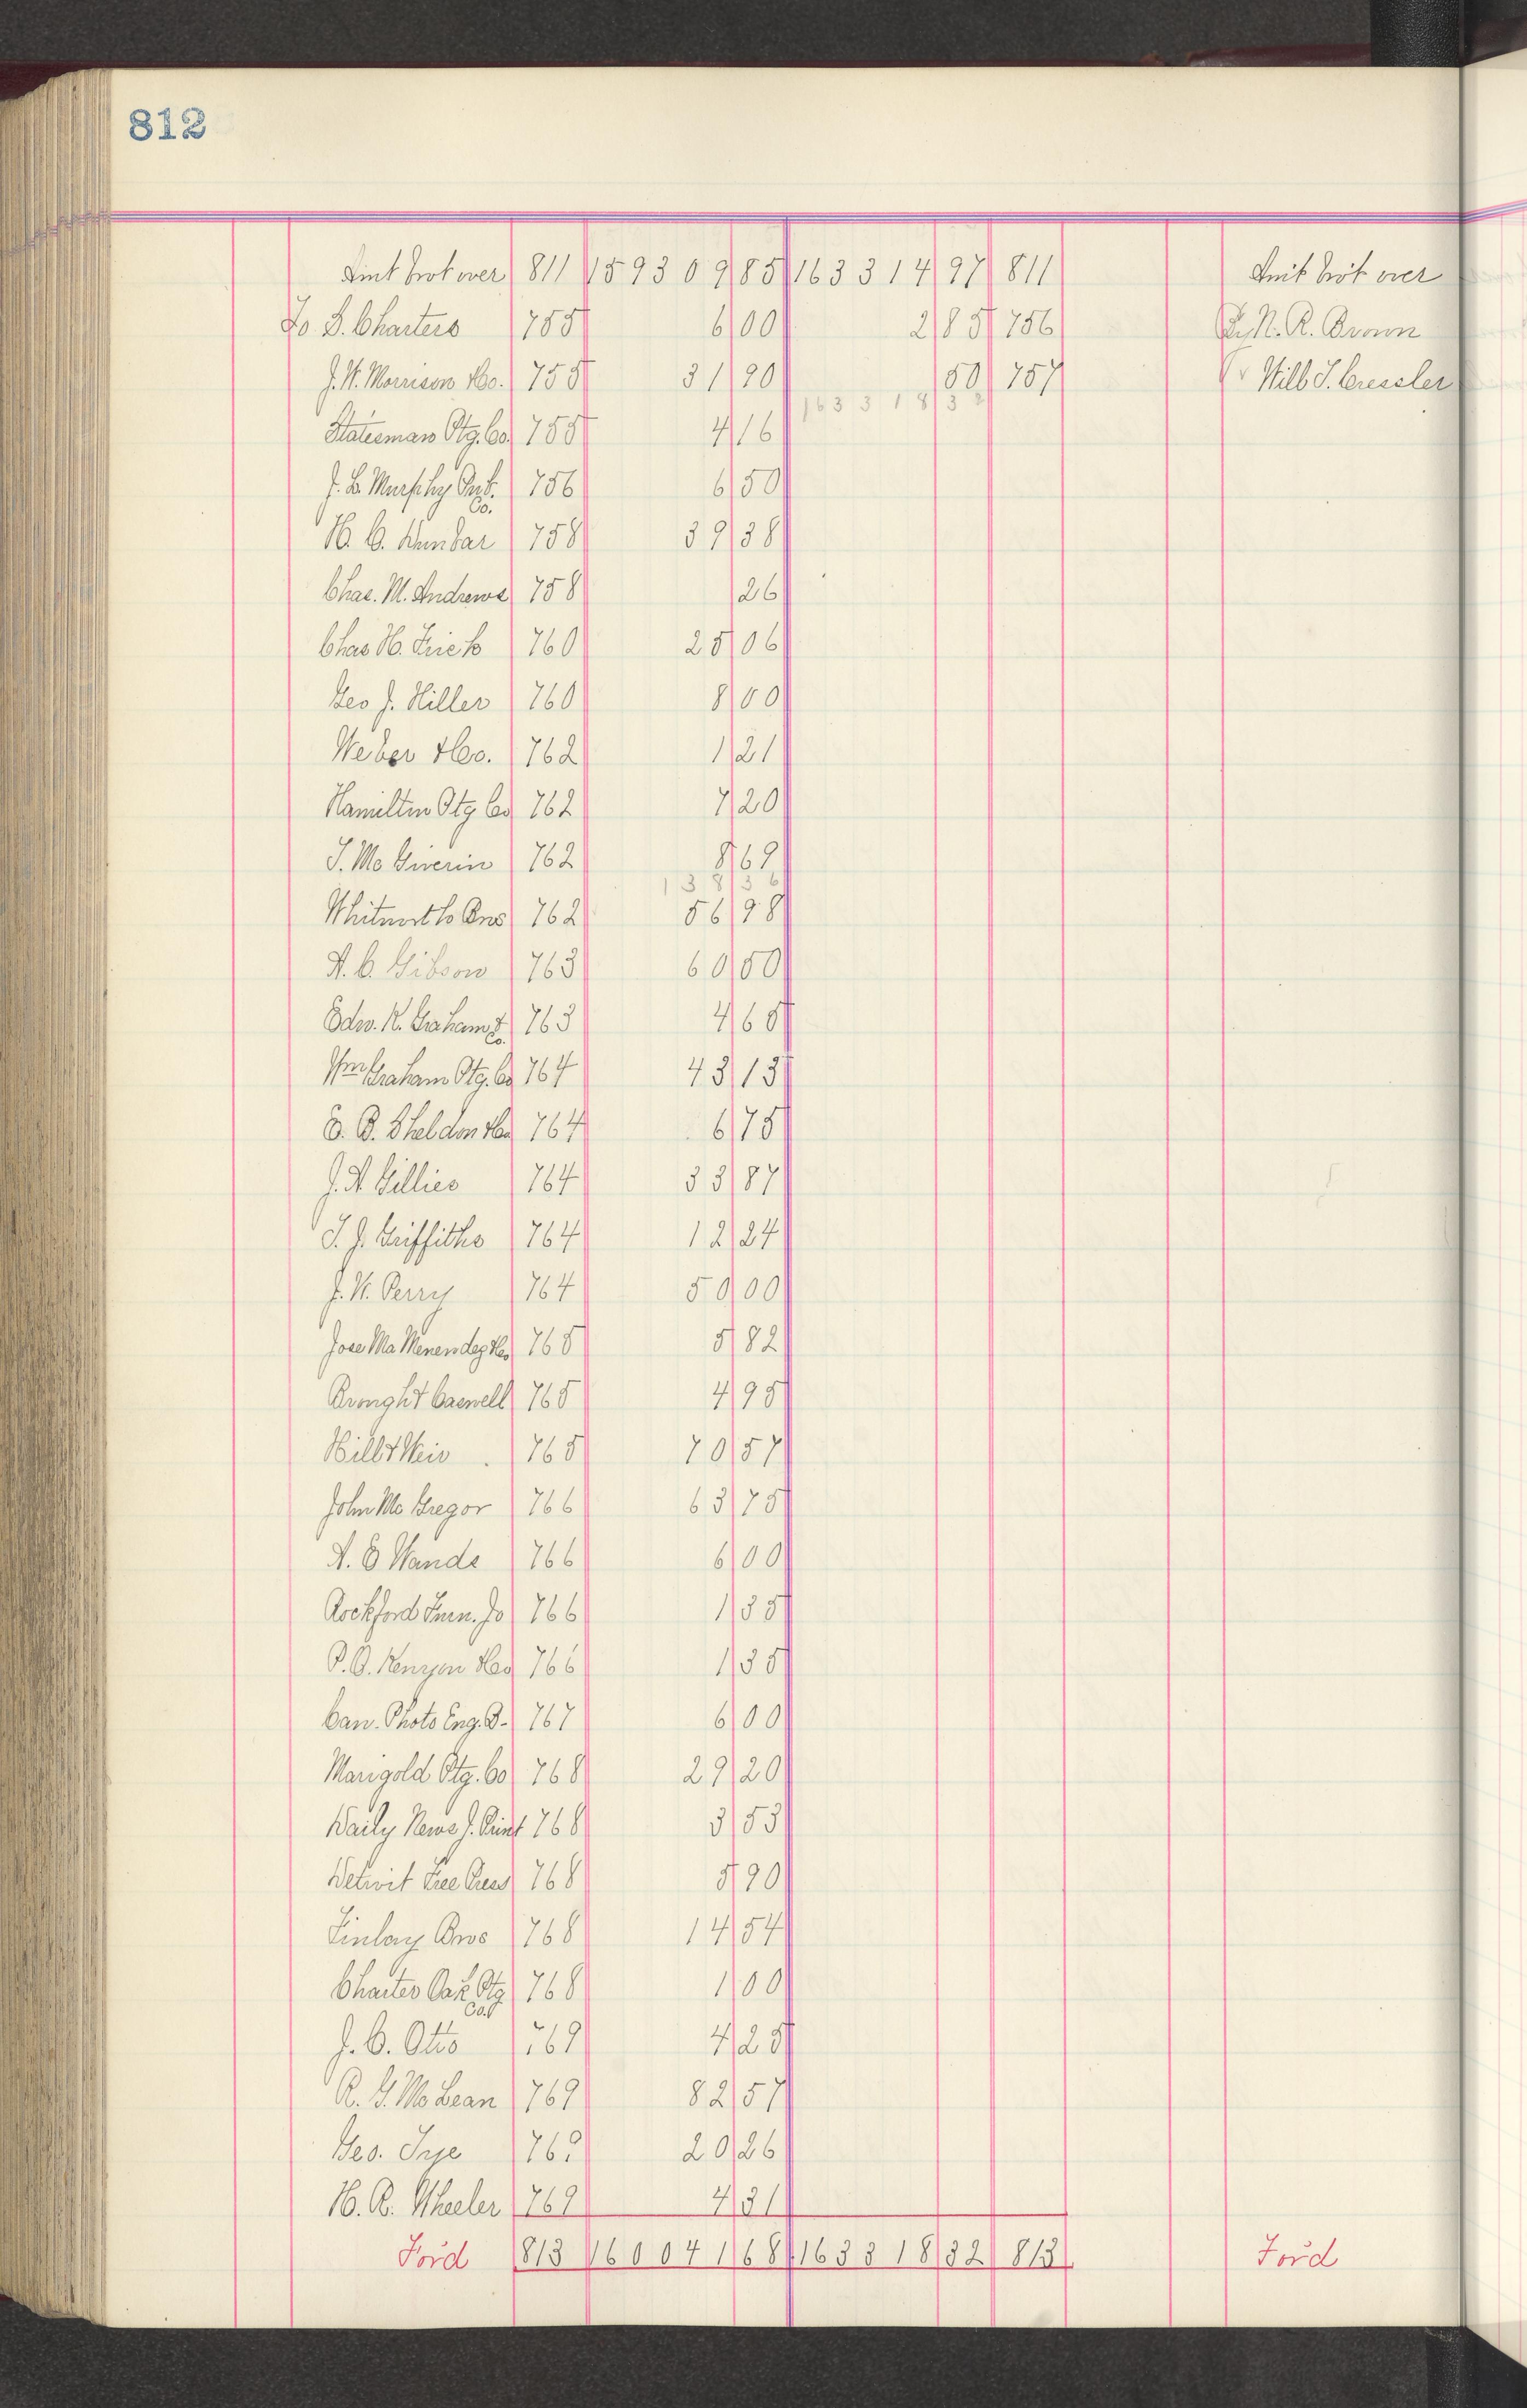 812
Amt brot over 811 159309 85 163314 97 811 Amt brot over
To S. Charters 755 6 00 2 85 756 By N. R. Brown
J. W. Morrison & Co. 755 31 90 50 757 " Will S. Cressler
163318 32
Statesman Ptg. Co. 755 4 16
J. B. Murphy Pub. Co. 756 6 50
H. C. Dunbar 758 39 38
Chas. M. Andrews 758 26
Chas H. Frick 760 25 06
Geo J. Hiller 760 8 00
Weber & Co. 762 1 21
Hamilton Ptg Co 762 7 20
T. Mc Giverin 762 8 69
138 36
Whitworth Bros 762 56 98
A. C. Gibson 763 60 50
Edw. K. Graham & Co. 763 4 65
Wm Graham Ptg. Co 764 43 15
E. B. Sheldon & Co 764 6 75
J. A Gillies 764 33 87
T. J. Griffiths 764 12 24
J. W. Perry 764 50 00
Jose Ma Menendez & Co 765 5 82
Brough & Caswell 765 4 95
Hill & Weir 765 70 57
John Mc Gregor 766 63 75
A. E Wande 766 6 00
Rockford Furn. Jo 766 1 35
P. B. Kenyon & Co 766 1 35
Can. Photo Eng. B. 767 6 00
Marigold Ptg. Co 768 29 20
Daily News J. Print 768 3 53
Detroit Free Press 768 5 90
Finlay Bros 768 14 54
Charter Oak Ptg Co. 768 1 00
J. C. Otto 769 4 25
R. G. Mc Lean 769 82 57
Geo. Inje 769 20 26
H. R. Wheeler 769 4 31
Ford 813 160041 68 163318 32 813 Ford